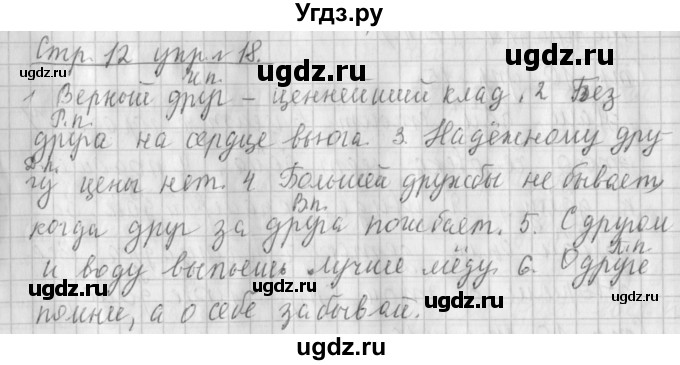 Угдз.ру
Стр. 12 упр. 18.
И.п.
1 Верный друг – ценнейший клад. 2 Без
Р.п.
друга на сердце вьюга. 3. Надёжному дру-
Д.п.
гу цены нет. 4 Большей дружбы не бывает,
В.п.
когда друг за друга погибает. 5. С другом
и воду выпьешь лучше мёду. 6. О друге
П.п.
помни, а о себе забывай.
ugdz.ru
ugdz.ru
ugdz.ru
ugdz.ru
ugdz.ru
ugdz.ru
ugdz.ru
ugdz.ru
ugdz.ru
ugdz.ru
ugdz.ru
ugdz.ru